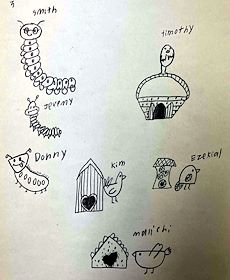 3
smith
timothy
Jeremy
Donny
Kim
Ezekial
malichi